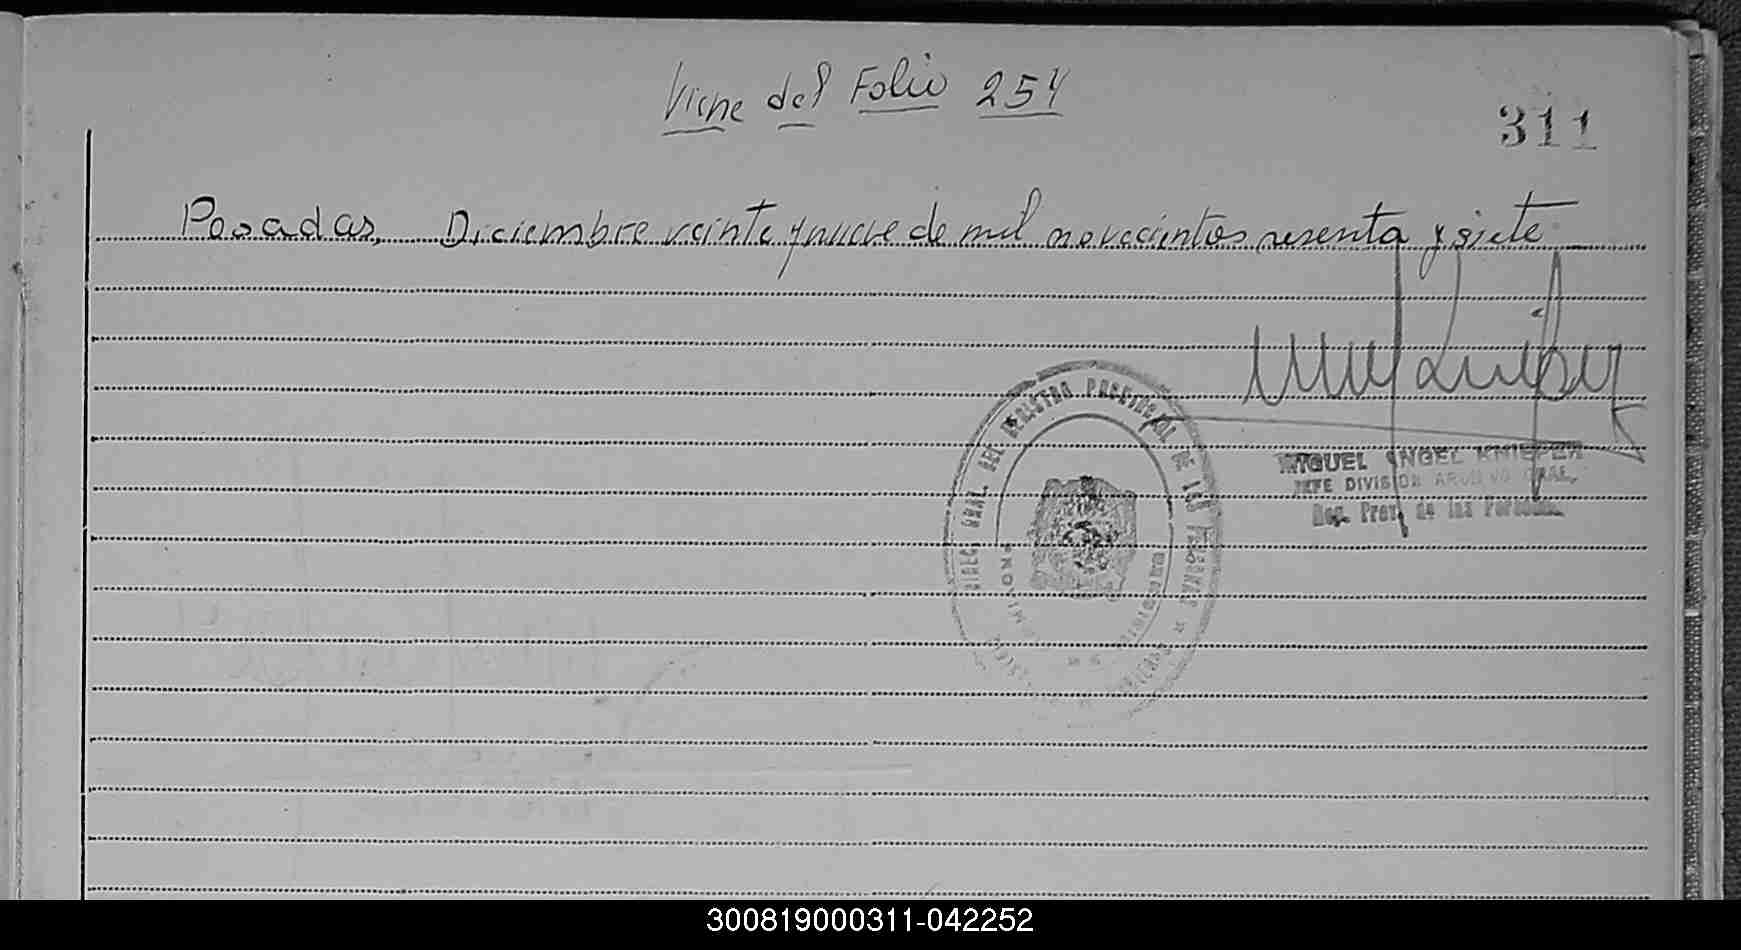 Viene del Folio 254
311
Posadas, Diciembre veinte y nueve de mil novecientos sesenta y siete
DIREC. GRAL. DEL REGISTRO PROVINCIAL DE LAS PERSONAS
MISIONES
MIGUEL ANGEL KNIEPER
JEFE DIVISION ARCHIVO GRAL.
Reg. Prov. de las Personas
300819000311-042252